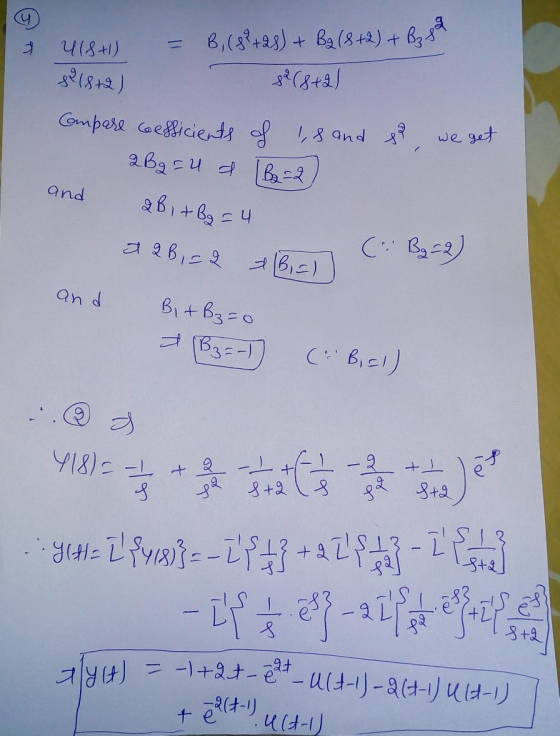 ④
⇒ 4(s+1) / s²(s+2) = B₁(s²+2s) + B₂(s+2) + B₃s² / s²(s+2)
Compare coefficients of 1, s and s², we get
2B₂=4 ⇒ B₂=2
and 2B₁+B₂=4
⇒ 2B₁=2 ⇒ B₁=1 (∵ B₂=2)
and B₁+B₃=0
⇒ B₃=-1 (∵ B₁=1)
∴ ② ⇒
Y(s)= -1/s + 2/s² - 1/s+2 + (-1/s - 2/s² + 1/s+2) e⁻ˢ
∴ y(t)= L⁻¹{Y(s)} = -L⁻¹{1/s} + 2L⁻¹{1/s²} - L⁻¹{1/s+2}
- L⁻¹{1/s · e⁻ˢ} - 2L⁻¹{1/s² · e⁻ˢ} + L⁻¹{e⁻ˢ/s+2}
⇒ y(t) = -1+2t - e^-2t - u(t-1) - 2(t-1) u(t-1)
+ e^-2(t-1) · u(t-1)